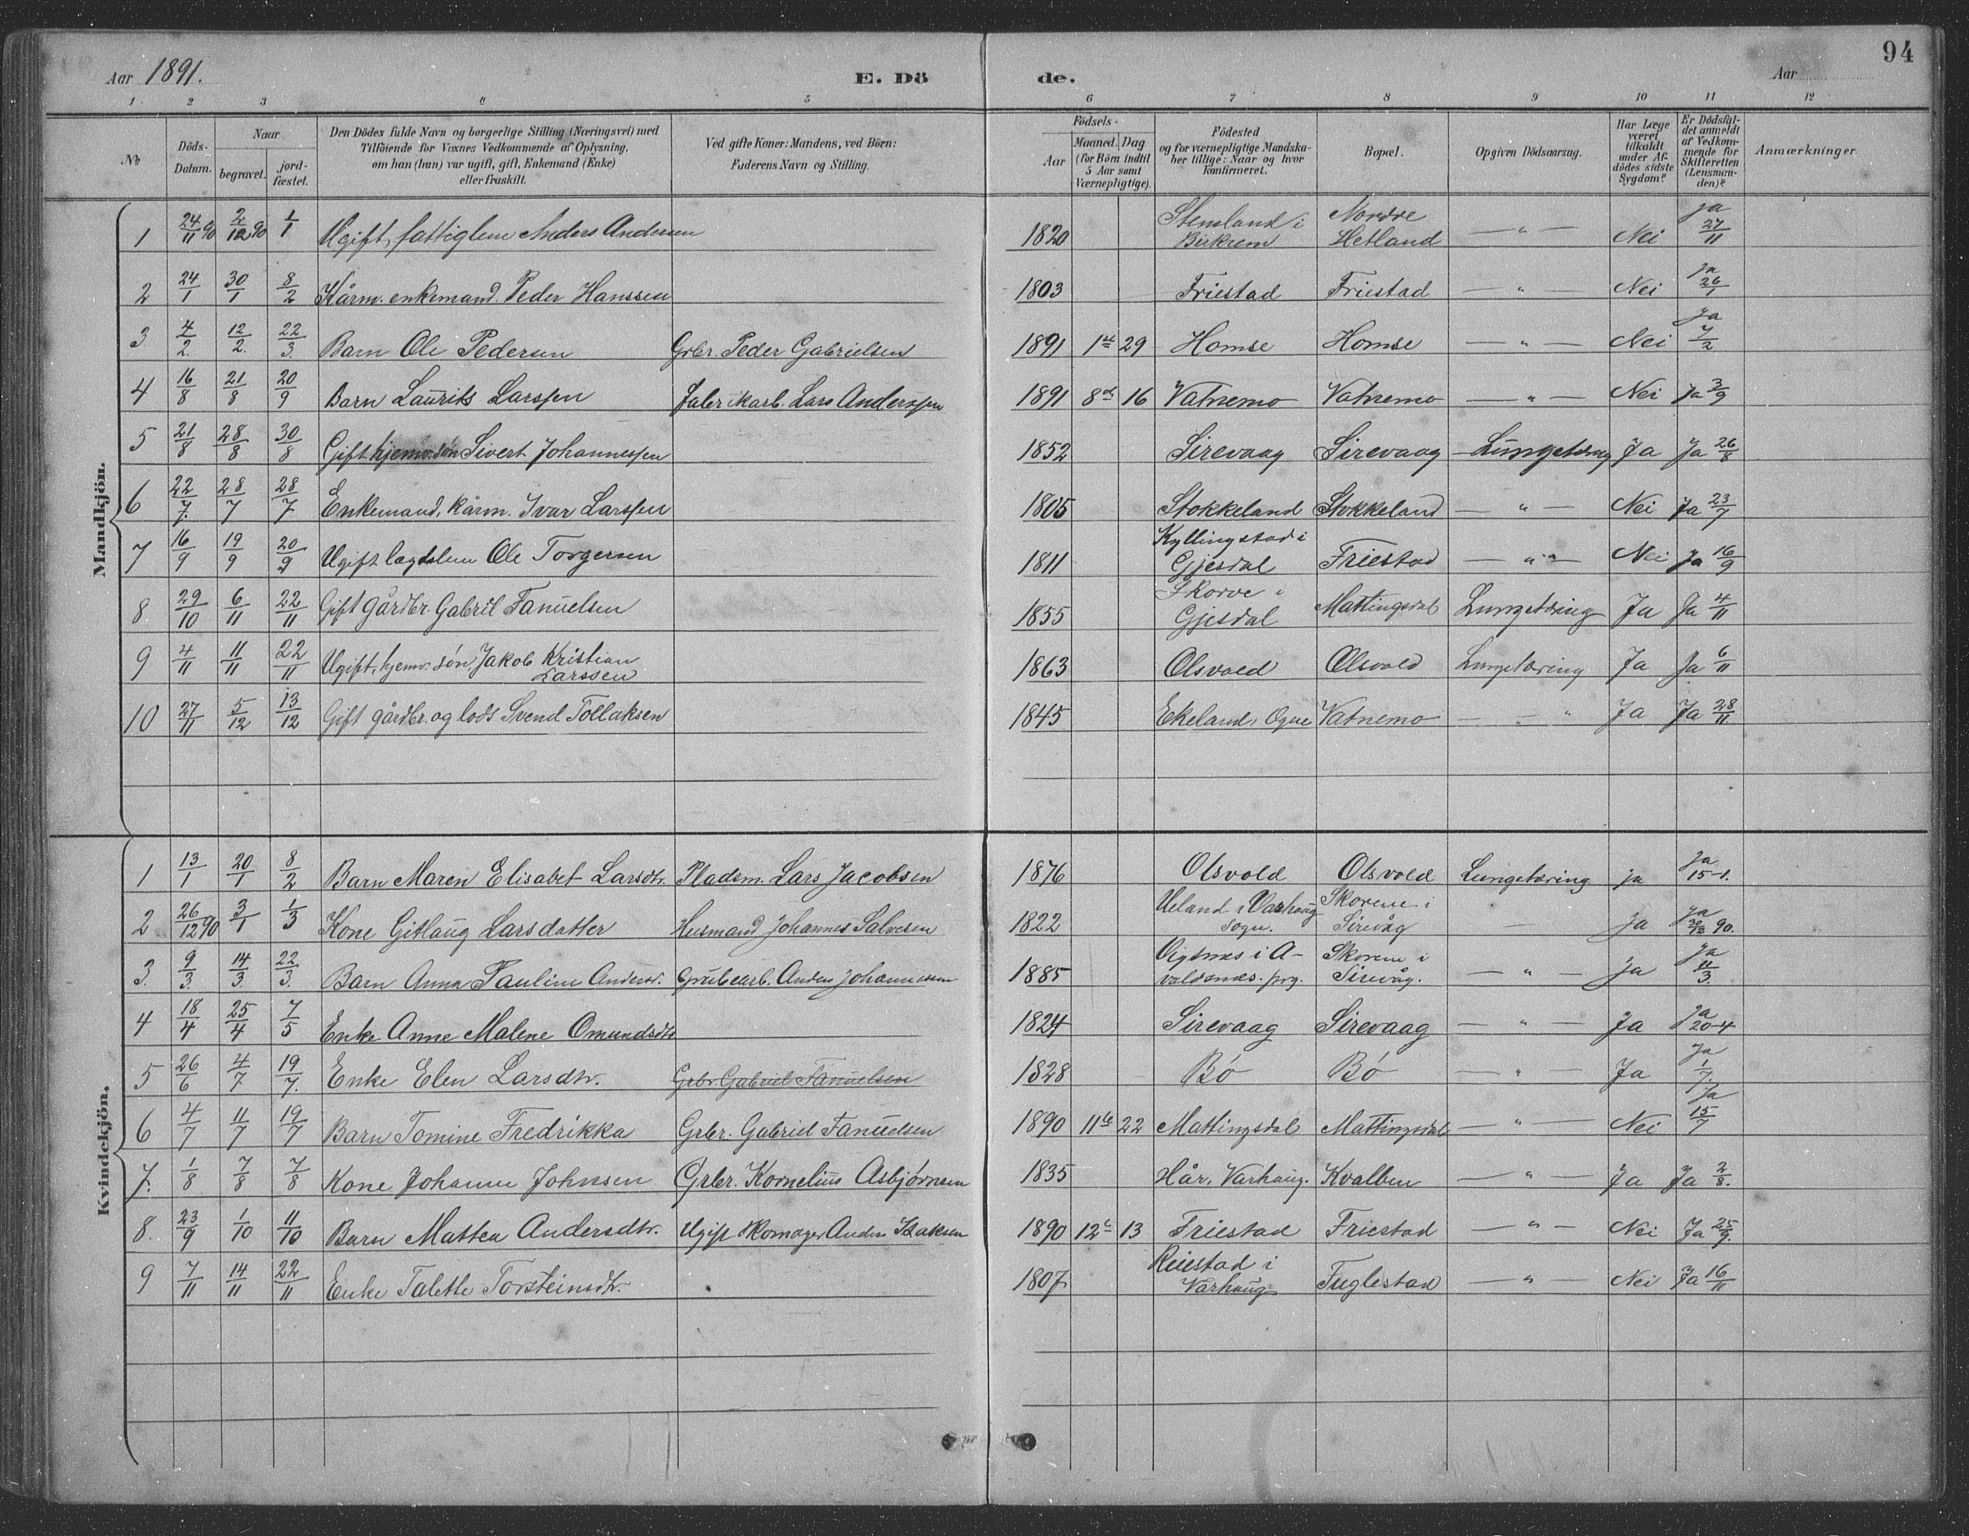 94
Aar 1891. E. Dö de. Aar
1 2 3 4 5 6 7 8 9 10 11 12
No Döds-Datum. Naar begravet. jordfæstet. Den Dödes fulde Navn og borgerlige Stilling (Næringsvei) med Tilföiende for Voxnes Vedkommende af Oplysning, om han (hun) var ugift, gift, Enkemand (Enke) eller fraskilt. Ved gifte Koner: Mandens, ved Börn: Faderens Navn og Stilling. Födsels- Aar Maaned. Dag (for Börn indtil 5 Aar samt Værnepligtige). Födested og for værnepligtige Mandskaber tillige: Naar og hvor konfirmeret. Bopæl. Opgiven Dödsaarsag. Har Læge været tilkaldt under Afdödes sidste Sygdom? Er Dödsfaldet anmeldt af Vedkommende for Skifteretten (Lensmanden)? Anmærkninger.
Mandkjön.
1 24/11 90 2/12 90 1/1 Ugift, fattiglem Anders Andersen 1820 Stemland i Birkrem Nordre Hetland — " — Nei ja 27/11
2 24/1 30/1 8/2 Kårm. enkemand. Peder Hanssen 1803 Friestad Friestad — " — Nei Ja 26/1
3 4/2 12/2 22/3 Barn Ole Pedersen Grbr. Peder Gabrielsen 1891 1 29 Homse Homse — " — Nei Ja 7/2
4 16/8 21/8 20/9 Barn Laurits Larssen Fabrikarb. Lars Anderssen 1891 8 16 Vatnemo Vatnemo — " — Nei Ja 3/9
5 21/8 28/8 30/8 Gift hjemv. søn Sivert Johannessen 1852 Sirevaag Sirevaag Lungetæring Ja Ja 26/8
6 22/7 28/7 28/7 Enkemand, kårm. Ivar Larssen 1805 Stokkeland Stokkeland — " — Nei Ja 23/7
7 16/9 19/9 20/9 Ugift lægdslem Ole Torgersen 1811 Kyllingstad i Gjesdal Friestad — " — Nei Ja 16/9
8 29/10 6/11 22/11 Gift gårdbr. Gabriel Fanuelsen 1855 Skorve i Gjesdal Mattingsdal Lungetæring Ja Ja 4/11
9 4/11 11/11 22/11 Ugift, hjemv. søn Jakob Kristian Larssen 1863 Olsvold Olsvold Lungetæring Ja Ja 6/11
10 27/11 5/12 13/12 Gift gårdbr. og lods Svend Tollaksen 1845 Ekeland, Ogne Vatnemo — " — Ja Ja 28/11
Kvindekjön.
1 13/1 20/1 8/2 Barn Maren Elisabet Larsdtr. Pladsm. Lars Jacobsen 1876 Olsvold Olsvold Lungetæring ja Ja 15-1.
2 26/12 90 3/1 1/3 Kone Gitlaug Larsdatter Husmand Johannes Salvesen 1822 Ueland i Varhaug Sogn. Skorene i Sirevåg — ja Ja 90.
3. 9/3. 14/3. 22/3. Barn Anna Pauline Andersdr. Grubearb. Anders Johannessen 1885 i Avaldsnes. prg. Skorene i Sirevåg. — " — ja Ja 11/3.
4 18/4 25/4 7/5 Enke Anne Malene Omundsdtr 1824 Sirevaag Sirevaag — " — Ja Ja 20-4.
5 26/6 4/7 19/7. Enke Elen Larsdtr. Grbr. Gabriel Fanuelsen 1828 Bö Bö — " — Ja Ja 1/7.
6 4/7 11/7 19/7 Barn Tomine Fredrikka Grbr. Gabriel Fanuelsen 1890 11 22 Mattingsdal Mattingsdal — " — Nei Ja 15/7
7. 1/8 7/8 7/8 Kone Johanne Johnsen Grbr. Kornelius Asbjørnsen 1835 Hår, Varhaug. Kvalben — " — Ja Ja 2/8.
8. 23/9 1/10 11/10 Barn Mattea Andersdtr. Ugift Skomager Anders Isaksen 1890 12 13 Friestad Friestad — " — Nei Ja 25/9.
9 7/11 14/11 22/11 Enke Talette Torsteinsdtr. 1807 Reiestad i Varhaug Fuglestad — " — Nei Ja 16/11